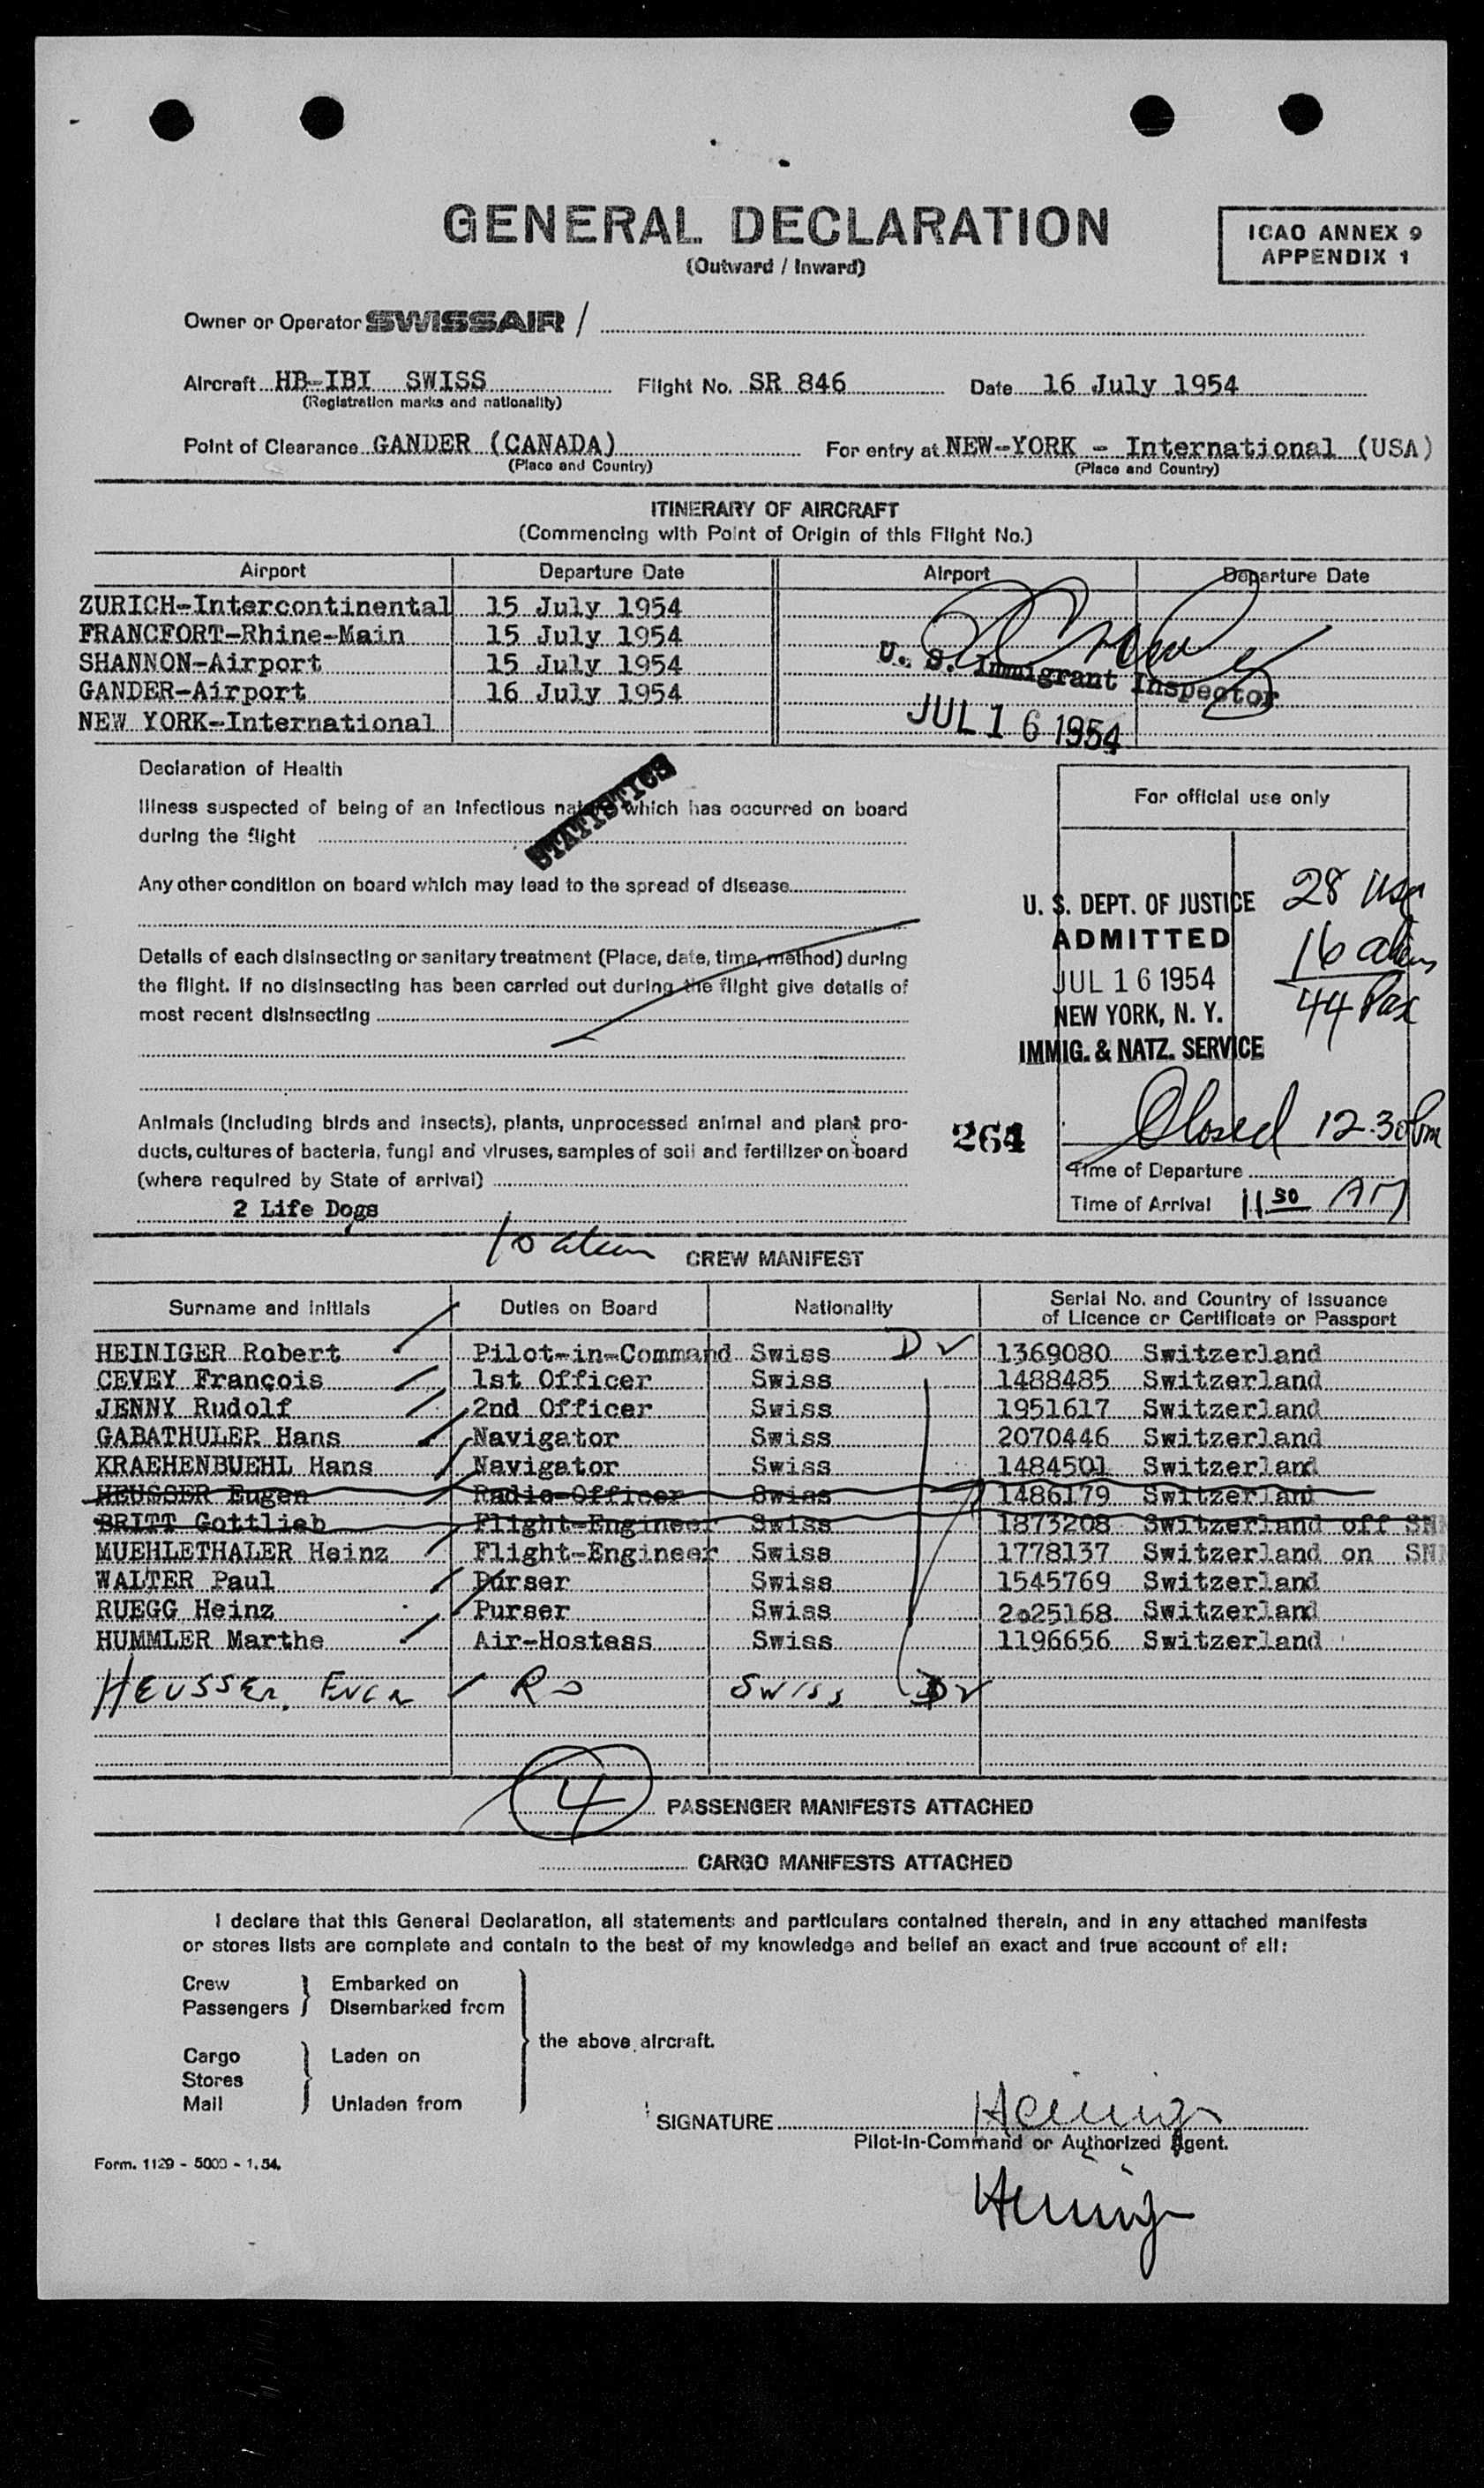 GENERAL DECLARATION
(Outward / Inward)
ICAO ANNEX 9
APPENDIX 1
Owner or Operator SWISSAIR /
Aircraft HB-IBI SWISS Flight No. SR 846 Date 16 July 1954
(Registration marks and nationality)
Point of Clearance GANDER (CANADA) For entry at NEW-YORK - International (USA)
(Place and Country) (Place and Country)
ITINERARY OF AIRCRAFT
(Commencing with Point of Origin of this Flight No.)
Airport Departure Date Airport Departure Date
ZURICH-Intercontinental 15 July 1954
FRANCFORT-Rhine-Main 15 July 1954
SHANNON-Airport 15 July 1954
GANDER-Airport 16 July 1954
NEW YORK-International
U. S. Immigrant Inspector
JUL 16 1954
Declaration of Health
STATISTICS
Illness suspected of being of an infectious nature which has occurred on board
during the flight
Any other condition on board which may lead to the spread of disease
Details of each disinsecting or sanitary treatment (Place, date, time, method) during
the flight. If no disinsecting has been carried out during the flight give details of
most recent disinsecting
Animals (including birds and insects), plants, unprocessed animal and plant pro-
ducts, cultures of bacteria, fungi and viruses, samples of soil and fertilizer on board
(where required by State of arrival)
2 Life Dogs
For official use only
U. S. DEPT. OF JUSTICE
ADMITTED
JUL 16 1954
NEW YORK, N. Y.
IMMIG. & NATZ. SERVICE
28 usa
16 aliens
44 Pax
264
Closed 12.30 pm
Time of Departure
Time of Arrival 11 50 AM
10 alien
CREW MANIFEST
Surname and Initials Duties on Board Nationality Serial No. and Country of Issuance
of Licence or Certificate or Passport
HEINIGER Robert Pilot-in-Command Swiss D 1369080 Switzerland
CEVEY François 1st Officer Swiss 1488485 Switzerland
JENNY Rudolf 2nd Officer Swiss 1951617 Switzerland
GABATHULER Hans Navigator Swiss 2070446 Switzerland
KRAEHENBUEHL Hans Navigator Swiss 1484501 Switzerland
HEUSSER Eugen Radio-Officer Swiss 1486179 Switzerland
BRITT Gottlieb Flight-Engineer Swiss 1873208 Switzerland off SNN
MUEHLETHALER Heinz Flight-Engineer Swiss 1778137 Switzerland on SNN
WALTER Paul Purser Swiss 1545769 Switzerland
RUEGG Heinz Purser Swiss 2025168 Switzerland
HUMMLER Marthe Air-Hostess Swiss 1196656 Switzerland
HEUSSER, RO SWISS D
4 PASSENGER MANIFESTS ATTACHED
CARGO MANIFESTS ATTACHED
I declare that this General Declaration, all statements and particulars contained therein, and in any attached manifests
or stores lists are complete and contain to the best of my knowledge and belief an exact and true account of all:
Crew Embarked on
Passengers Disembarked from
the above aircraft.
Cargo Laden on
Stores
Mail Unladen from
SIGNATURE Heiniger
Pilot-in-Command or Authorized Agent.
Heiniger
Form. 1129 - 5000 - 1.54.